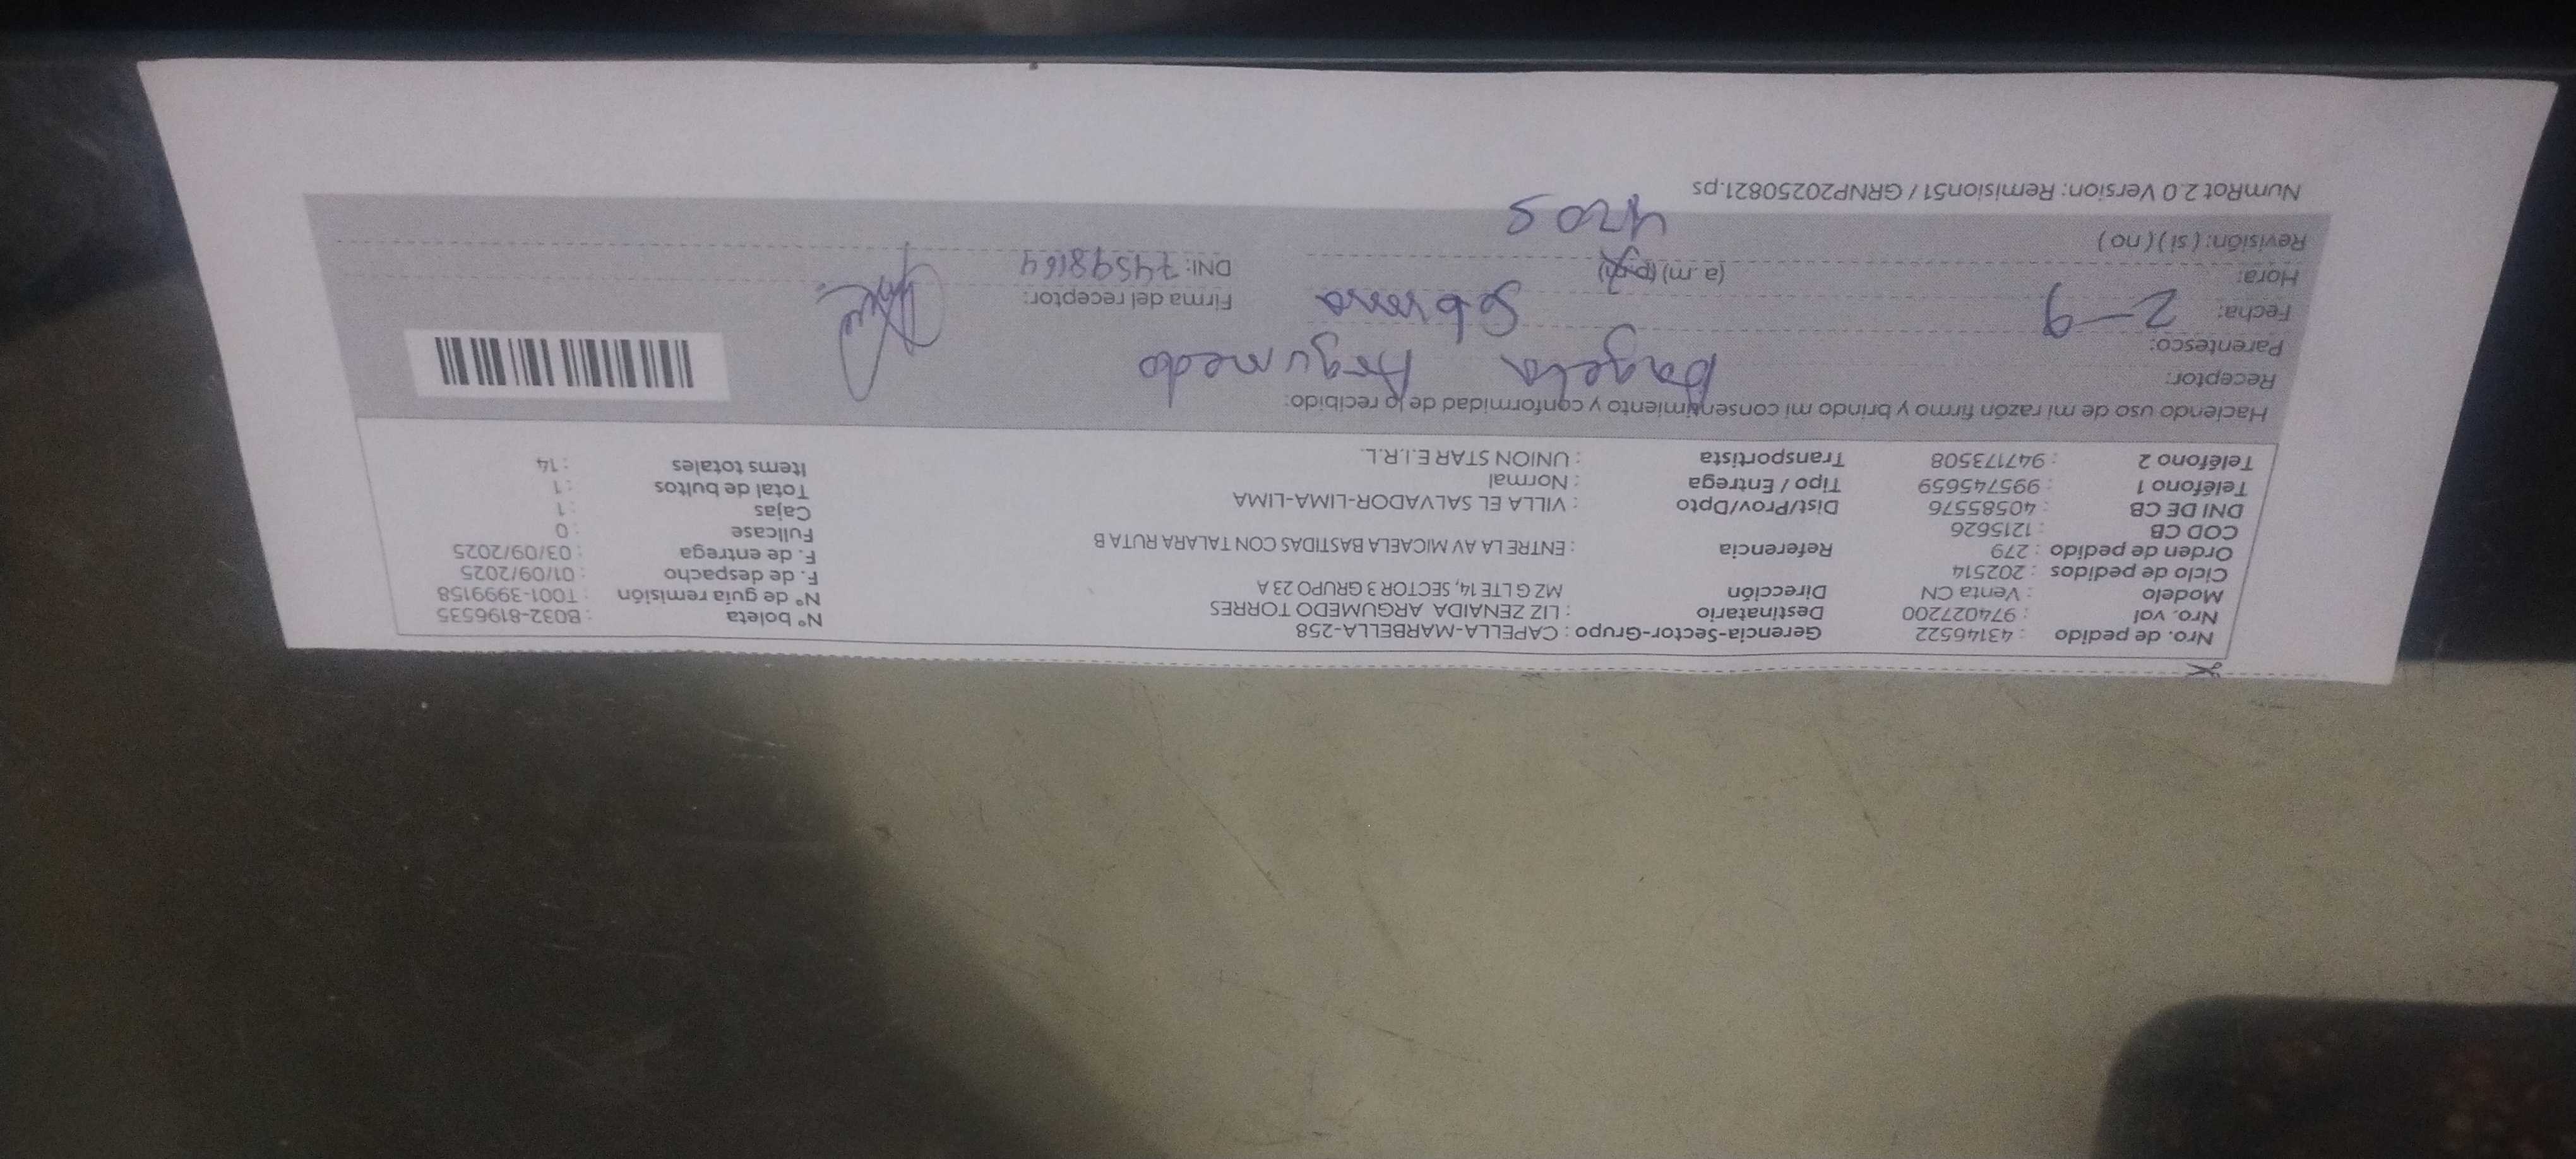 Nro. de pedido : 43146522 Gerencia-Sector-Grupo : CAPELLA-MARBELLA-258 N° boleta : B032-8196535
Nro. vol : 974027200 Destinatario : LIZ ZENAIDA ARGUMEDO TORRES N° de guia remisión : T001-3999158
Modelo : Venta CN Dirección MZ G LTE 14, SECTOR 3 GRUPO 23 A F. de despacho : 01/09/2025
Ciclo de pedidos : 202514 F. de entrega : 03/09/2025
Orden de pedido : 279 Referencia : ENTRE LA AV MICAELA BASTIDAS CON TALARA RUTA B Fullcase : 0
COD CB : 1215626 Cajas : 1
DNI DE CB : 40585576 Dist/Prov/Dpto : VILLA EL SALVADOR-LIMA-LIMA Total de bultos : 1
Teléfono 1 : 995745659 Tipo / Entrega : Normal Items totales : 14
Teléfono 2 : 947173508 Transportista : UNION STAR E.I.R.L.
Haciendo uso de mi razón firmo y brindo mi consentimiento y conformidad de lo recibido:
Receptor: Argumedo
Parentesco: Sobrina
Fecha: 2-9 Firma del receptor:
Hora: (a.m) (p.m) DNI: 74598164
Revisión: ( si ) ( no )
NumRot 2.0 Version: Remision51 / GRNP20250821.ps